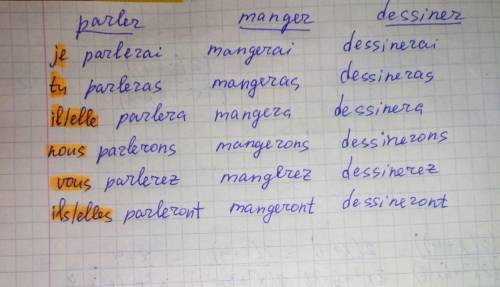 parler manger dessiner
je parlerai mangerai dessinerai
tu parleras mangeras dessineras
il/elle parlera mangera dessinera
nous parlerons mangerons dessinerons
vous parlerez mangerez dessinerez
ils/elles parleront mangeront dessineront